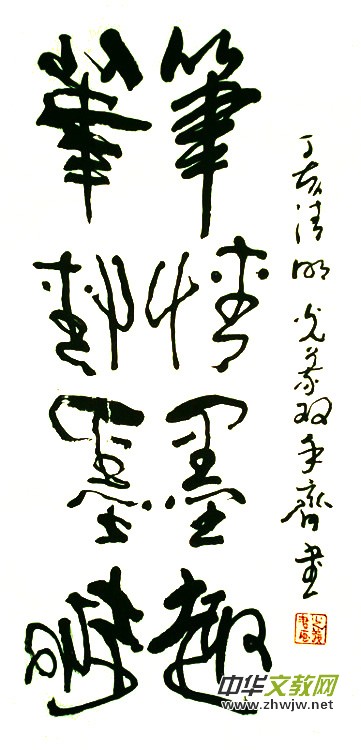 筆情墨趣
筆情墨趣
丁亥清明 光 双手齊書
中华文教网
www.zhwjw.net